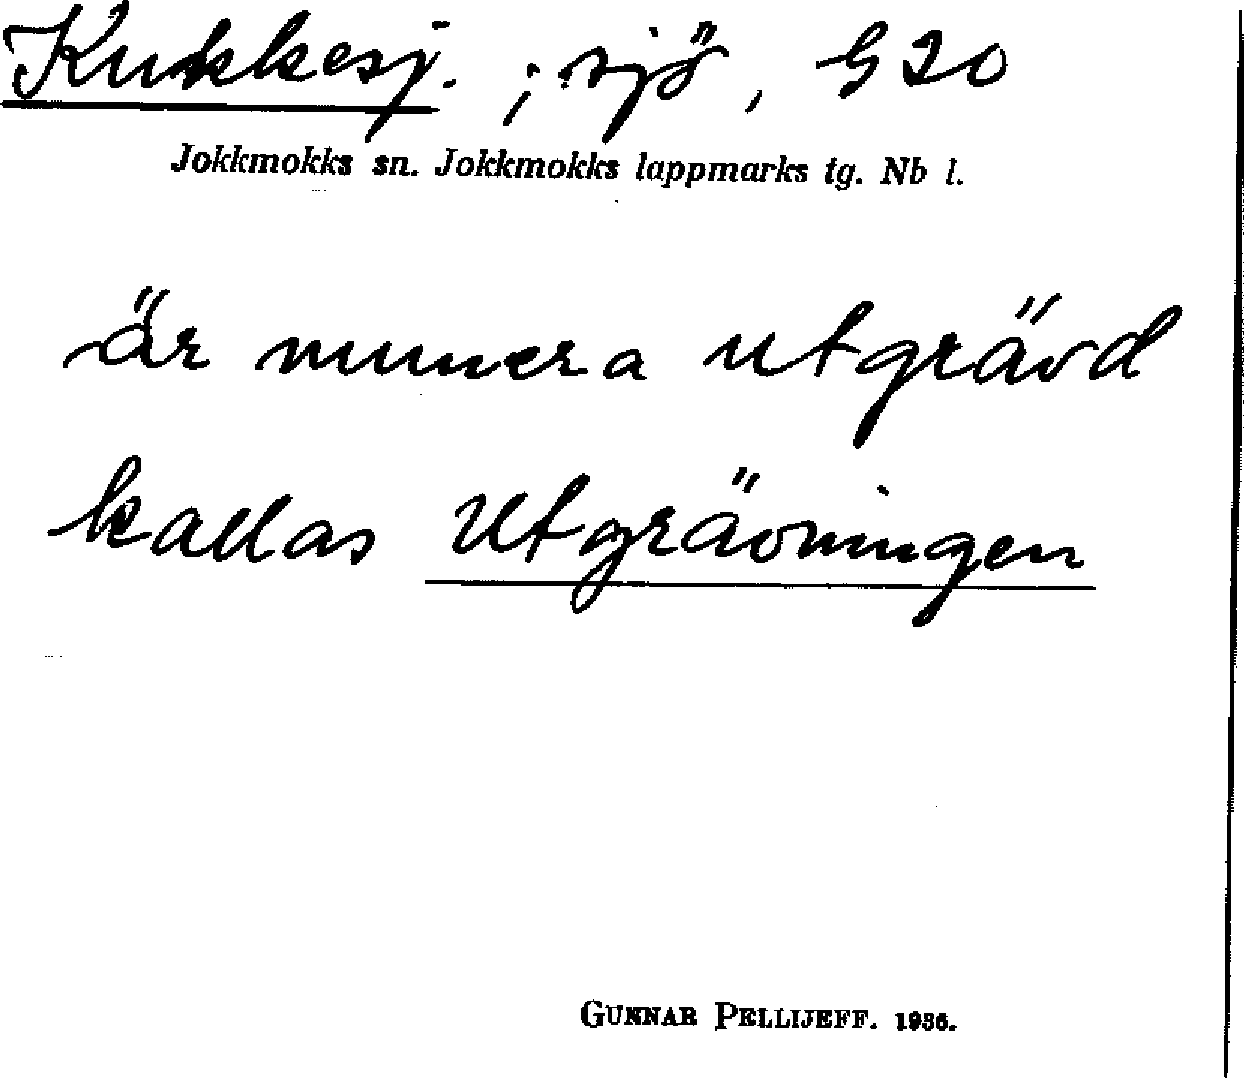 Kukkesj. ; sjö, G 20
Jokkmokks sn. Jokkmokks lappmarks tg. Nb l.
är numera utgrävd
kallas Utgrävningen
GUNNAR PELLIJEFF. 1936.